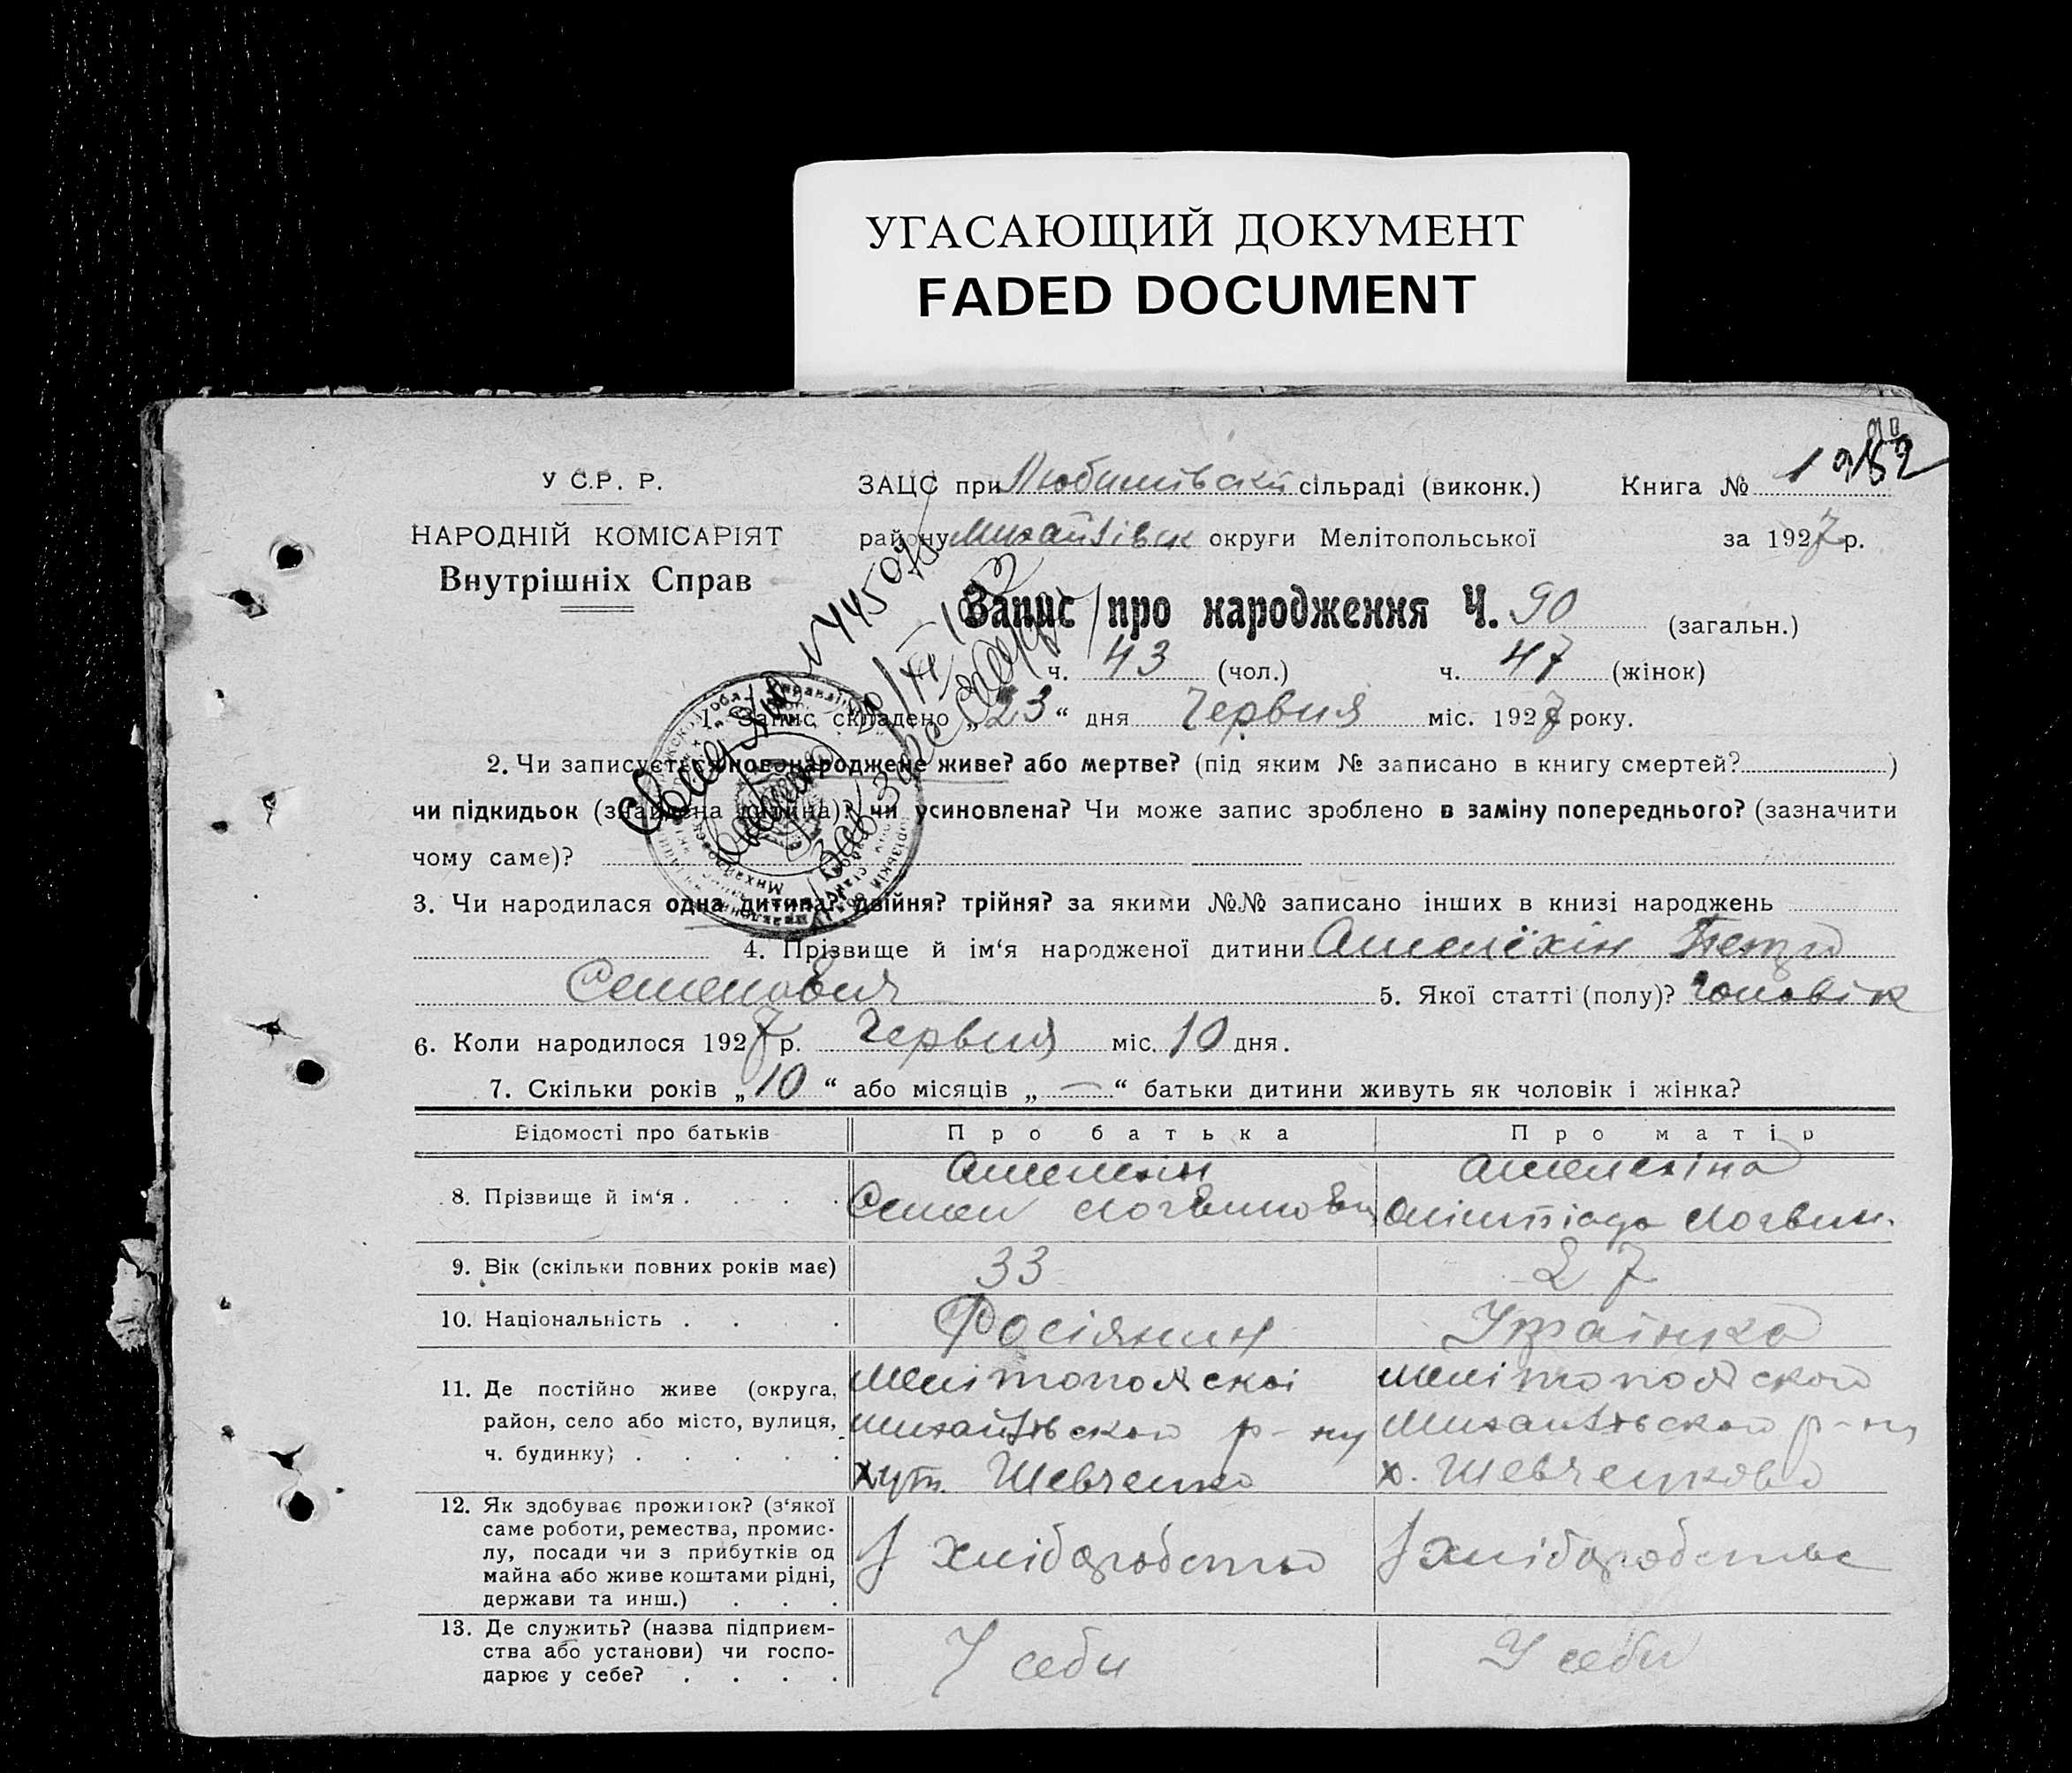 УГАСАЮЩИЙ ДОКУМЕНТ
FADED DOCUMENT
У С.Р. Р.
НАРОДНІЙ КОМІСАРІЯТ
Внутрішніх Справ
ЗАЦС при Любимівскй сільраді (виконк.) Книга №
району Михайлівск округи Мелітопольської за 1927 р.
Запис про народження Ч. 90 (загальн.)
ч. 43 (чол.) ч. 47 (жінок)
1. Запис складено „23“ дня Червня міс. 1927 року.
2. Чи записується новонароджене живе? або мертве? (під яким № записано в книгу смертей? )
чи підкидьок (знайдена дитина)? чи усиновлена? Чи може запис зроблено в заміну попереднього? (зазначити
чому саме)?
3. Чи народилася одна дитина? двійня? трійня? за якими №№ записано інших в книзі народжень
4. Прізвище й ім‘я народженої дитини Амелёхін Петро
Семенович 5. Якої статті (полу)? Чоловік
6. Коли народилося 1927 р. Червня міс. 10 дня.
7. Скільки років „10“ або місяців „—“ батьки дитини живуть як чоловік і жінка?
Відомості про батьків Про батька Про матір
8. Прізвище й ім‘я . . . . Амелехін Семен Логвинович Амелехіна Олімпіада Логвин.
9. Вік (скільки повних років має) 33 27
10. Національність . . . Росіянин Українка
11. Де постійно живе (округа, Мелітопольскоі Мелітопольскои
район, село або місто, вулиця, Михайлівскои р-ну Михайлівскои р-ну
ч. будинку) . . . . . Хут. Шевченко х. Шевченково
12. Як здобуває прожиток? (з‘якої
саме роботи, ремества, промис-
лу, посади чи з прибутків од хліборобство хліборобство
майна або живе коштами рідні,
держави та инш.) . . .
13. Де служить? (назва підприєм-
ства або установи) чи госпо- У себи У себи
дарює у себе? . . . .